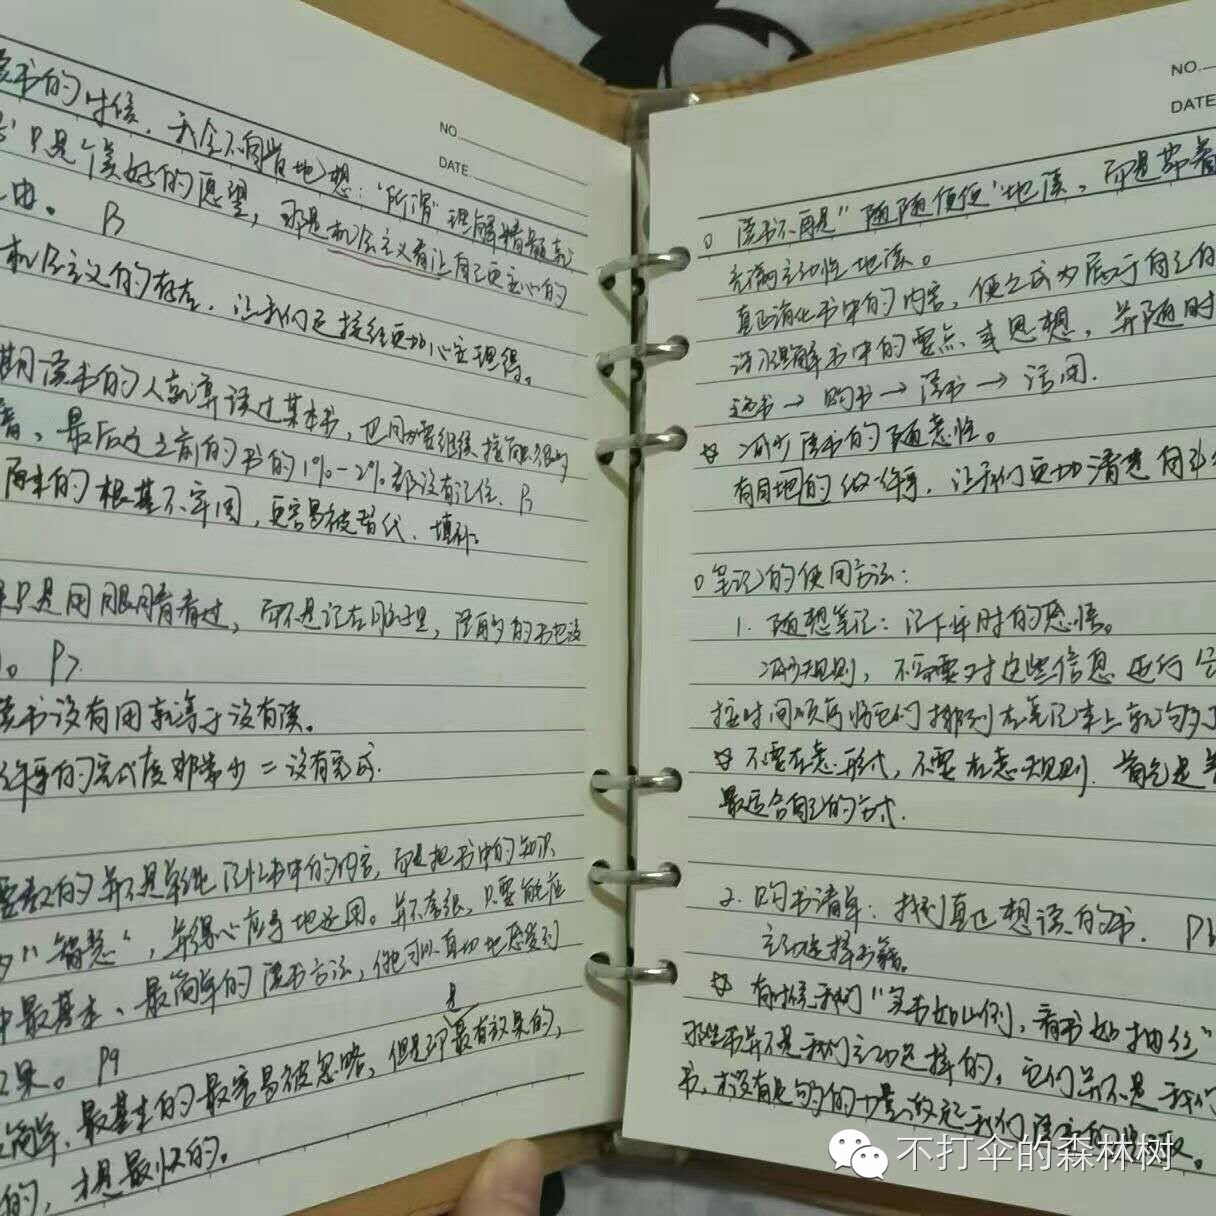 NO.
DATE
读书的时候，我会不自觉地想："所谓"理解精髓就
只是个美好的愿望，那是机会主义者让自己更安心的
理由。
机会主义的存在，让我们逃避得更加心安理得。
期读书的人就算读过某本书，也同
着，最后连之前的书的1%-2%都没有记住。
原来的根基不牢固，更容易被替代、填补。
只是用眼睛看过，而不是记在脑子里，读再多的书也没
读书没有用就等于没有读。
件事的完成度非常少=没有完成.
要教的并不是单纯记忆书中的内容，而是把书中的知识
"智慧"，并得心应手地运用。并不在于很，只要能在
中最基本、最简单的读书方法，他可以真切地感受到
果。P9
简单、最基本的最容易被忽略，但是却是最有效果的，
的，才是最快的。
NO.
DATE
读书不再是"随随便便"地读，而是带着
充满主动性地读。
真正消化书中的内容，使之成为属于自己的
深刻理解书中的要点或思想，并随时
选书→购书→读书→活用.
☆减少读书的随意性。
有目地的做一件事，让我们更加清楚自己
笔记的使用方法：
1. 随想笔记：记下平时的感悟。
减少规则，不需要对这些信息进行分
按时间顺序将它们排列在笔记本上就够了
☆不要在意形式，不要在意规则.首先是
最适合自己的方式.
2. 购书清单：找到真正想读的书.
主动选择书籍。
☆有时候我们"买书如山倒，看书如抽丝"
那些书并不是我们主动选择的，它们并不是我们
书，才没有足够的力量激起我们读书的欲望。
不打伞的森林树